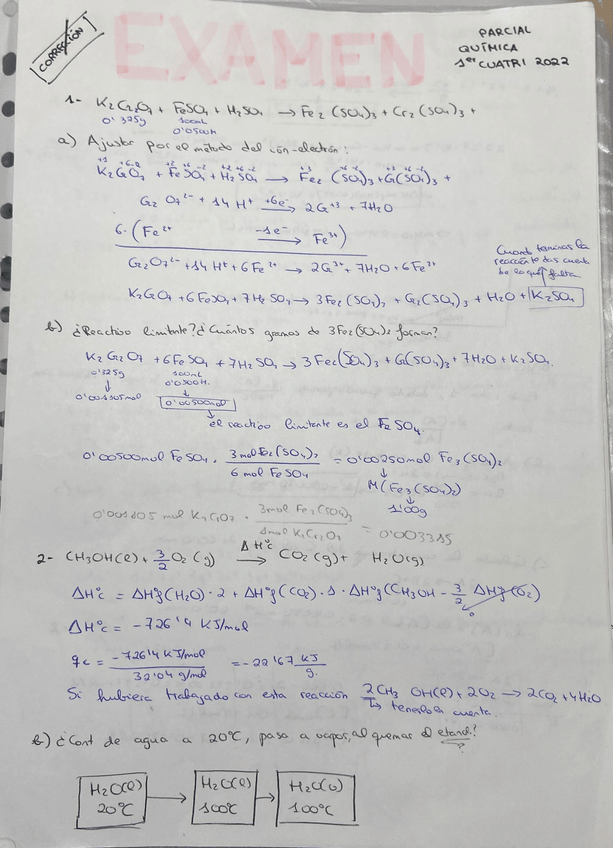 CORRECCIÓN
EXAMEN
PARCIAL
QUÍMICA
1er CUATRI 2022
1- K2Cr2O7 + FeSO4 + H2SO4 → Fe2(SO4)3 + Cr2(SO4)3 +
0'325g 100mL
0'0500M
a) Ajustar por el método del ión-electrón:
K2Cr2O7 + FeSO4 + H2SO4 → Fe2(SO4)3 + Cr2(SO4)3 +
Cr2O7²⁻ + 14H⁺ +6e⁻→ 2Cr⁺³ + 7H2O
6·(Fe²⁺ -1e⁻→ Fe³⁺)
Cr2O7²⁻ + 14H⁺ + 6Fe²⁺ → 2Cr³⁺ + 7H2O + 6Fe³⁺
Cuando terminas la
reacción te das cuenta
de lo que falta
K2Cr2O7 + 6FeSO4 + 7H2SO4 → 3Fe2(SO4)3 + Cr2(SO4)3 + H2O + K2SO4
b) ¿Reactivo limitante? ¿Cuántos gramos de 3Fe2(SO4)3 forman?
K2Cr2O7 + 6FeSO4 + 7H2SO4 → 3Fe2(SO4)3 + Cr2(SO4)3 + 7H2O + K2SO4
0'325g 100mL
0'0500M.
0'001105mol 0'00500mol
el reactivo limitante es el FeSO4.
0'00500mol FeSO4 · 3mol Fe2(SO4)3 / 6 mol FeSO4 = 0'00250mol Fe3(SO4)2
M(Fe3(SO4)2)
1'00g
0'001105 mol K2Cr2O7 · 3mol Fe2(SO4)3 / 1mol K2Cr2O7 = 0'003315
2- CH3OH(l) + 3/2 O2(g) ΔH°c→ CO2(g) + H2O(g)
ΔH°c = ΔH°f(H2O)·2 + ΔH°f(CO2)·1·ΔH°f(CH3OH - 3/2 ΔH°f(O2) 0
ΔH°c = -726'4 KJ/mol
qc = -726'4 KJ/mol / 32'04 g/mol = -22'67 KJ/g.
Si hubiera trabajado con esta reacción 2CH3OH(l) + 2O2 → 2CO2 + 4H2O
tenerlo en cuenta.
b) ¿Cant de agua a 20°C, pasa a vapor, al quemar el etanol?
H2O(l) → H2O(l) → H2O(v)
20°C 100°C 100°C